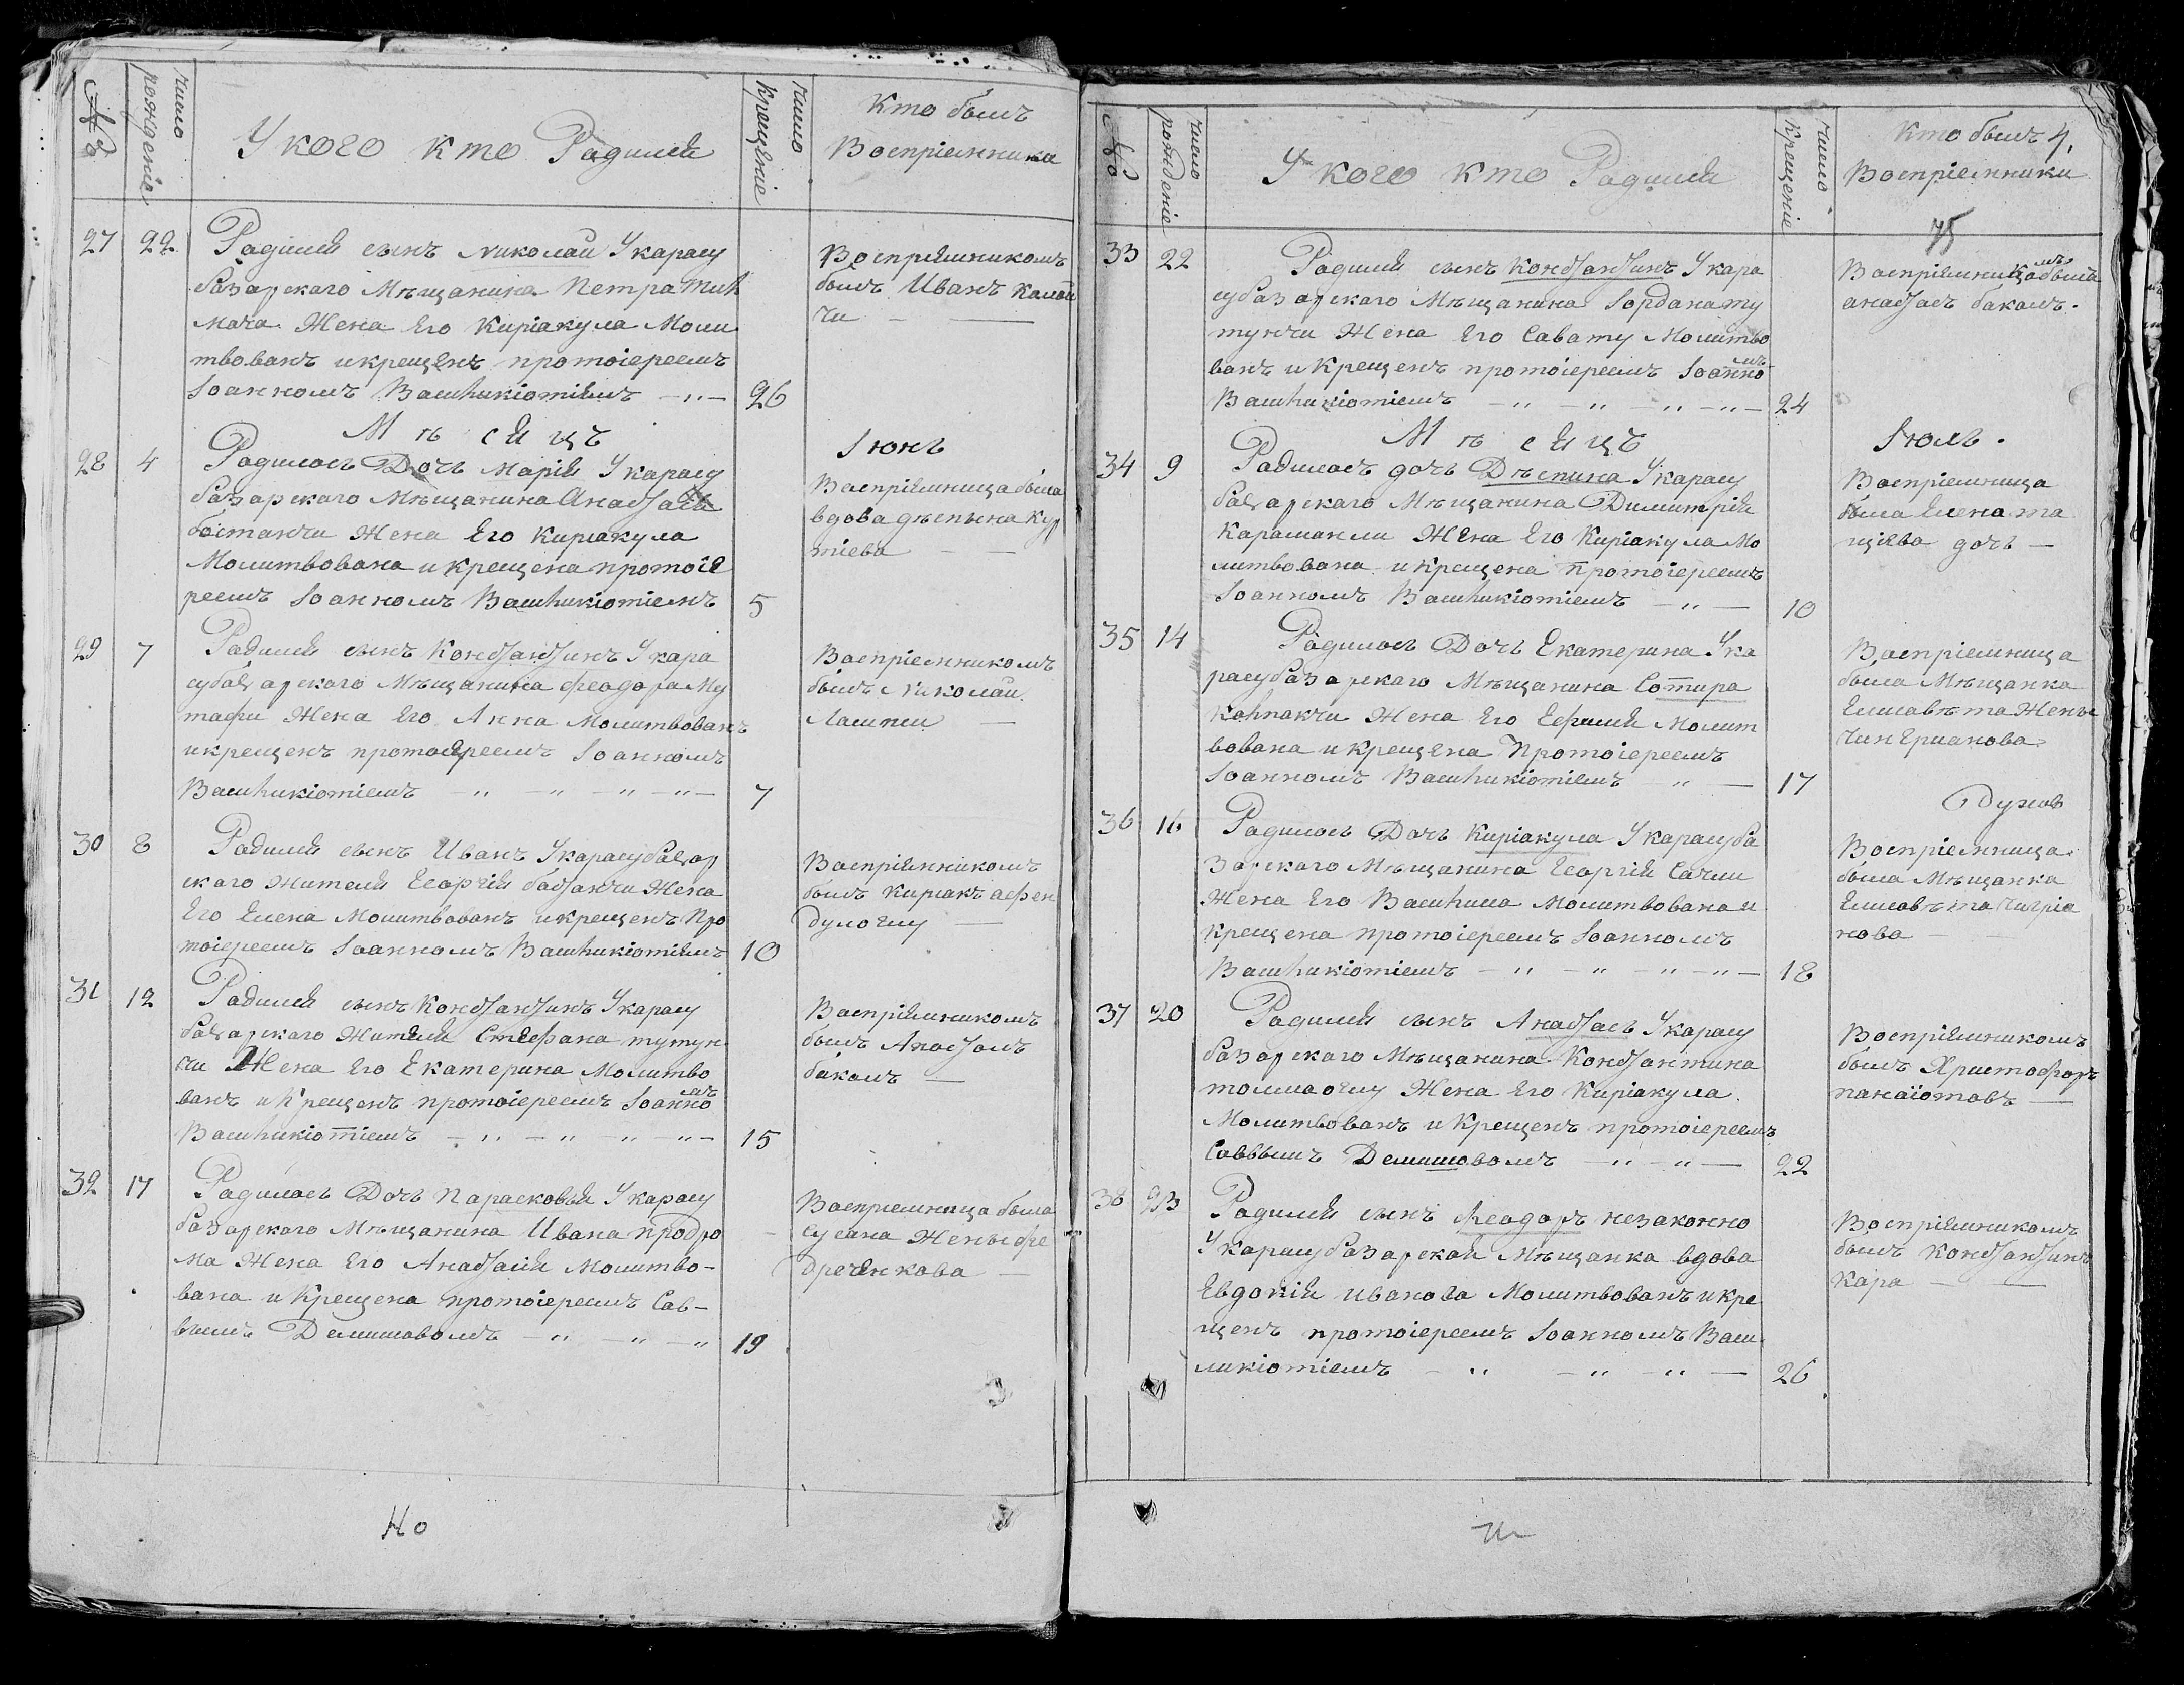 №
число рожденіе
У кого кто Радился
число крещеніе
Кто былъ
Воспріемники
27 22 Радился сынъ Николай У карасу
базарскаго Мѣщанина Петра
мача Жена Его Киріакула Моли
твованъ и крещенъ протоіереемъ
Іоанномъ Вашликіотіемъ 26
Воспріемникомъ
былъ Иванъ Калай
чи
Мѣсяцъ Іюнь
28 4 Радилась Дочь Марія У карасу
базарскаго Мѣщанина Анастаса
бостанчи Жена Его Киріакула
Молитвована и крещена протоіе
реемъ Іоанномъ Вашликіотіемъ 5
Воспріемница была
вдова дѣспина Кур
тіева
29 7 Радился сынъ Константинъ У кара
субазарскаго Мѣщанина Феодора Му
тафи Жена Его Анна Молитвованъ
и крещенъ протоіереемъ Іоанномъ
Вашликіотіемъ 7
Воспріемникомъ
былъ Николай
Лампси
30 8 Радился сынъ Иванъ У карасубазар
скаго жителя Георгія бастанчи Жена
Его Елена Молитвованъ и крещенъ Про
тоіереемъ Іоанномъ Вашликіотіемъ 10
Воспріемникомъ
былъ Киріакъ афен
дулоглу
31 12 Радился сынъ Константинъ У карасу
базарскаго Жителя Стефана тутун
чи Жена Его Екатерина Молитво
ванъ и Крещенъ протоіереемъ Іоанномъ
Вашликіотіемъ 15
Воспріемникомъ
былъ Анастасъ
бакалъ
32 17 Радилась Дочь Парасковья У карасу
базарскаго Мѣщанина Ивана продро
ма Жена Его Анастасія Молитво-
вана и Крещена протоіереемъ Сав-
вымъ Делишовомъ 19
Воспріемница была
Сусана Жены фе
дреченкова
№
число рожденіе
У кого кто Радился
число крещеніе
Кто былъ 4,
Воспріемники
75
33 22 Радился сынъ Константинъ У кара
субазарскаго Мѣщанина Іордана ту
тунчи Жена Его Савату Молитво
ванъ и Крещенъ протоіереемъ Іоанномъ
Вашликіотіемъ 24
анастасъ бакалъ.
Мѣсяцъ Іюль.
34 9 Радилась дочь Дѣспина У карасу
базарскаго Мѣщанина Димитрія
Караманли Жена Его Киріакула Мо
литвована и крещена протоіереемъ
Іоанномъ Вашликіотіемъ 10
Воспріемница
была Елена та
щіева дочь
35 14 Радилась Дочь Екатерина У ка
расубазарскаго Мѣщанина Сотира
Калпакчи Жена Его Ефимія Молит
вована и крещена Протоіереемъ
Іоанномъ Вашликіотіемъ 17
Воспріемница
была Мѣщанка
Елисавѣта Жены
чингрианова
36 16 Радилась Дочь Киріакула У карасуба
зарскаго Мѣщанина Георгія Сачли
Жена Его Вашлиша Молитвована и
крещена протоіереемъ Іоанномъ
Вашликіотіемъ 18
Воспріемница
была Мѣщанка
Елисавѣта Чигріа
нова
37 20 Радился сынъ Анастасъ У карасу
базарскаго Мѣщанина Константина
толмаоглу Жена Его Киріакула
Молитвованъ и Крещенъ протоіереемъ
Саввымъ Делишовомъ 22
Воспріемникомъ
былъ Христофоръ
панаіотовъ
38 23 Радился сынъ Феодоръ незаконно
У карасубазарской Мѣщанка вдова
Евдокія Иванова Молитвованъ и кре
щенъ протоіереемъ Іоанномъ Ваш
ликіотіемъ 26
Воспріемникомъ
былъ Константинъ
Кара